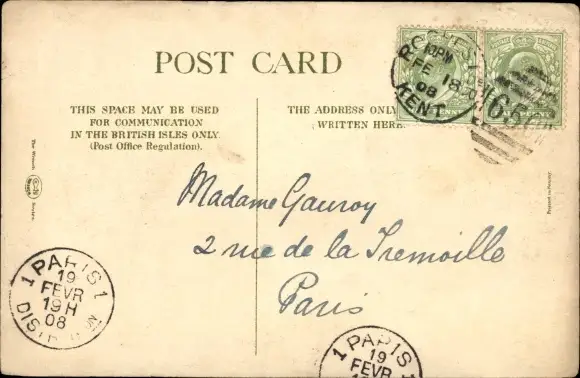 POST CARD
THIS SPACE MAY BE USED
FOR COMMUNICATION
IN THE BRITISH ISLES ONLY.
(Post Office Regulation).
THE ADDRESS ONLY
WRITTEN HERE.
KENT
12PM
FE 18
08
65
Madame Gauroy
2 rue de la Tremoille
Paris
1 PARIS 1
19
FEVR
19H
08
1 PARIS 1
19
FEVR